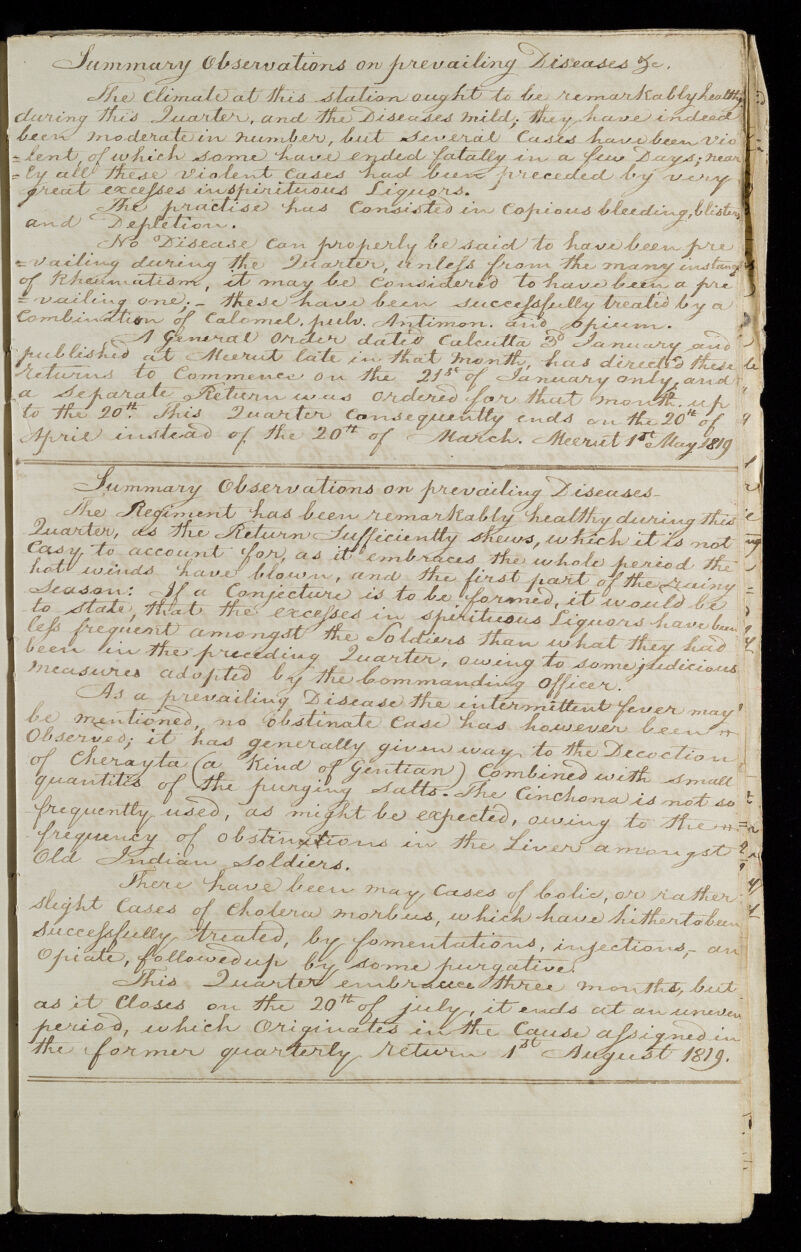 Summary Observations on prevailing Diseases &c.
The Climate at this station ought to be remarkably healthy
during this Quarter, and the Diseases mild; they have indeed
been moderate in number, but several Cases have been vio
=lent, of which some have ended fatally in a few Days; near
=ly all these violent Cases had been preceded by very
great excesses in spirituous Liquors.
The practise has Consisted in Copious bleeding, blisters
and Depletion.
No Disease Can properly be said to have been pre
=vailing during the Quarter, unless from the many instances
of Rheumatism, it may be Considered to have been a pre
=vailing one. - these have been successfully treated by a
Combination of Calomel. pulv. Antimon. and opium.
A General Order dated Calcutta 3d January and
published at Meerut late in that Month, has directed these
returns to Commence on the 21st of January only, and
a Separate Return was ordered for that month. up
to the 20th. This Quarter Consequently ends on the 20th of
April instead of the 20th of March. Meerut 1st May 1819
Summary Observations on prevailing Diseases -
The Regiment has been remarkably healthy during this
Quarter, as the Return Sufficiently shews, which it is not
Easy to account for, as it embraces the whole period the
hot winds have blown, and the first part of the rainy
Season: If a Conjecture is to be formed, it would be
to state, that the excesses in spirituous Liquors have been
less frequent amongst the Soldiers than what they had
been in the preceding Quarter, owing to some judicious
measures adopted by the Commanding Officer.
As a prevailing Disease the intermittent fever may
be mentioned, no obstinate Case has however been
Observed; it has generally given way to the Decoction
of Cherayta (a Kind of Gentian) Combined with small
quantities of the purging salts. The Cinchona is not so
frequently used, as might be expected, owing to the
frequency of obstructions in the Liver amongst
Old Indian Soldiers.
There have been may Cases of Colic, or rather
slight Cases of Cholera morbus, which have hitherto been
Successfully treated, by fomentations, injections, - an
Opiate, followed up by some purgative.
This Quarter embraces three months, but
as it Closes on the 20th of july, it ends at an uneven
period, which Originates in the Cause assigned in
the former quarterly return 1st August 1819.